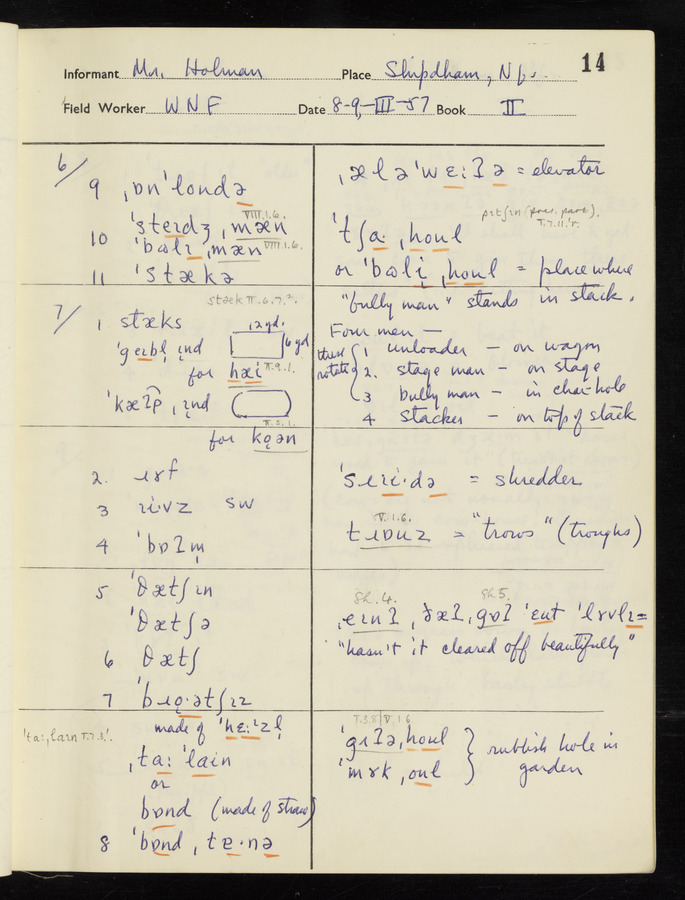 14
Informant Mr. Holman Place Shipdham, Nf.
Field Worker WNF Date 8-9-III-57 Book II
6/
9 ˌɒnˈloudə
VIII.1.6.
10 ˈsteɪdʒ ˌmæn
ˈbʊlɪ ˌmæn VIII.1.6.
11 ˈstækə
stæk II.6.7.
7/ 1 stæks
12 yd.
ˈgeɪbl̩ ɪnd 6 yd
for hæi II.9.1.
ˈkæʔp̑ ˌɪnd
II.5.1.
for kọən
2. ɹɤf
3 ɹi·vz sw
4 ˈbɒʔm̩
5 ˈθætʃɪn
ˈθætʃə
6 θætʃ
7 ˈbɹọ·ətʃɪz
made of ˈhɛ:ᶻzl̩
ˈta:ˌlain T.7.3.
ˌta: ˈlain
or
bɒnd (made of straw)
8 ˈbɒndˌtɛ·nə
ˌæləˈwɛ:ʔə = elevator
T.7.11.
ˈtʃa: ˌhoul
or ˈbʊli ˌhoul = place where
"bully man" stands in stack.
Four men —
these rotate
1 unloader — on wagon
2. stage man — on stage
3 bully man — in char-hole
4 stacker — on top of stack
ˈsɹi·də = shredder
V.1.6.
tɹɒuz = "trows" (troughs)
Sh.4. Sh5.
ˌeɪnʔ ˌðæʔ ˌgɒʔ ˈɛut ˈlɤvlɪ =
"hasn't it cleared off beautifully"
T.3.8 V.1.6
ˈgɤʔə ˌhoul
ˈmɤk ˌoul
rubbish hole in
garden